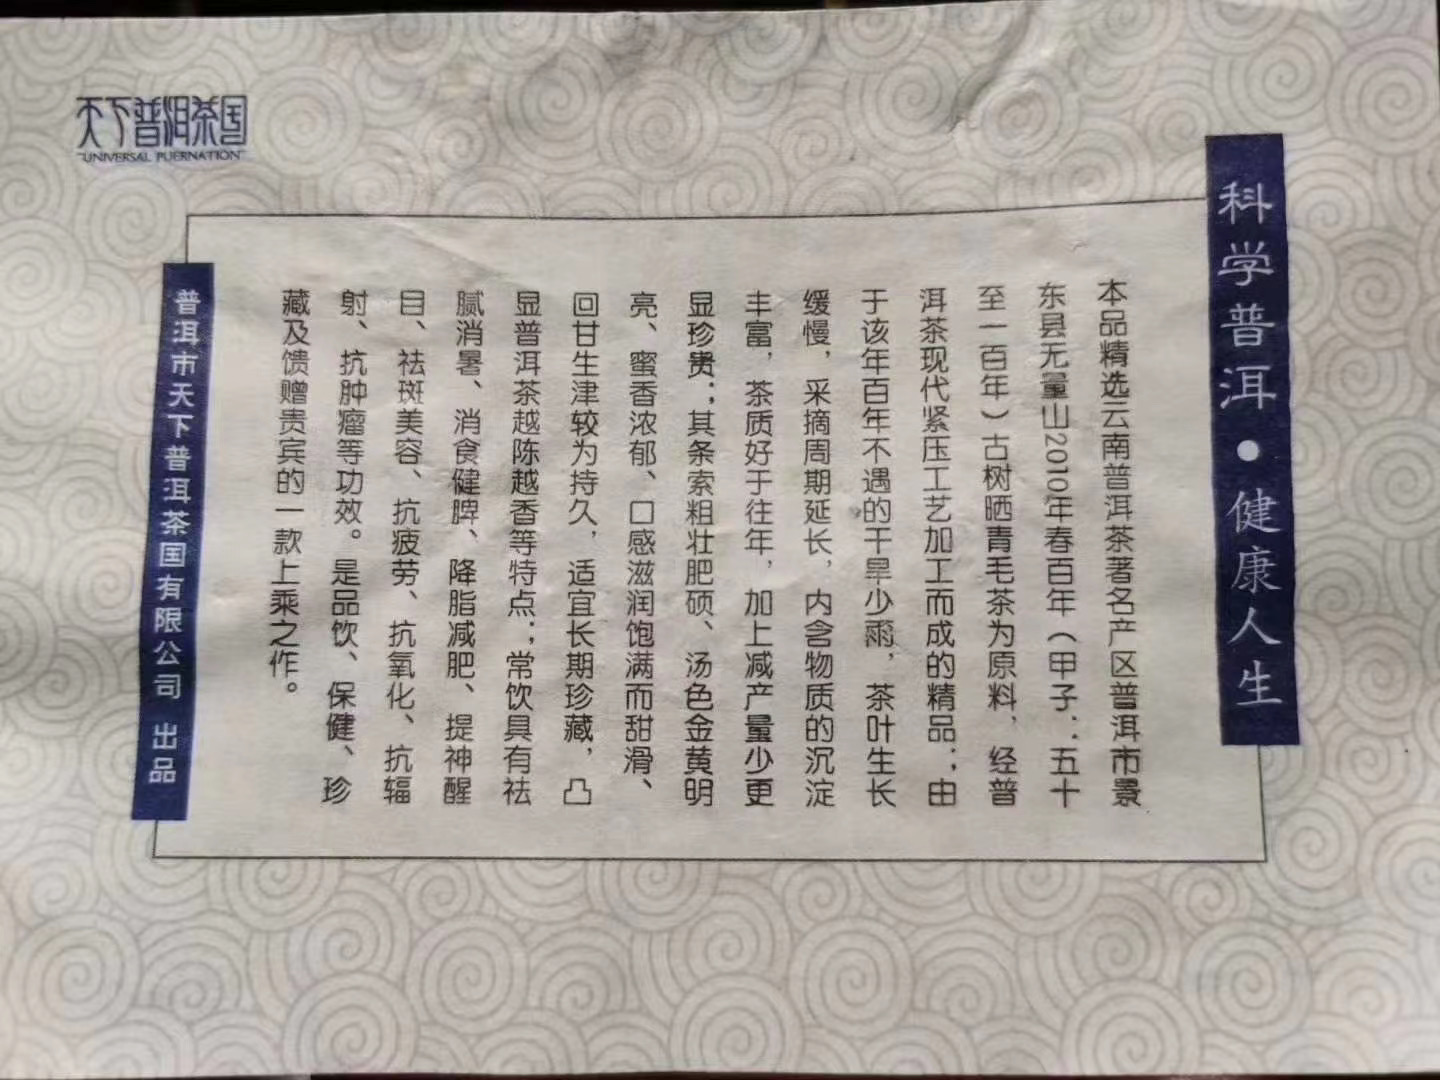 天下普洱茶国
UNIVERSAL PUERNATION
科学普洱•健康人生
本品精选云南普洱茶著名产区普洱市景
东县无量山2010年春百年（甲子：五十
至一百年）古树晒青毛茶为原料，经普
洱茶现代紧压工艺加工而成的精品；由
于该年百年不遇的干旱少雨，茶叶生长
缓慢，采摘周期延长，内含物质的沉淀
丰富，茶质好于往年，加上减产量少更
显珍贵；其条索粗壮肥硕、汤色金黄明
亮、蜜香浓郁、口感滋润饱满而甜滑、
回甘生津较为持久，适宜长期珍藏，凸
显普洱茶越陈越香等特点；常饮具有祛
腻消暑、消食健脾、降脂减肥、提神醒
目、祛斑美容、抗疲劳、抗氧化、抗辐
射、抗肿瘤等功效。是品饮、保健、珍
藏及馈赠贵宾的一款上乘之作。
普洱市天下普洱茶国有限公司 出品